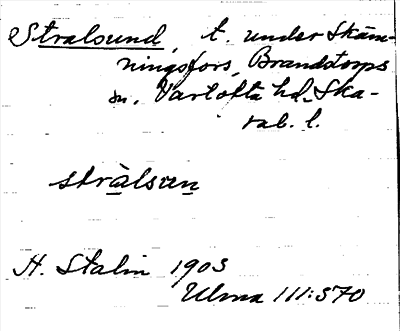 Stralsund, t. under Skäm-
ningsfors, Brandstorps
sn. Vartofta hd. Ska-
rab. l.
stràlsun
H. Stalin 1903
Ulma 111:570